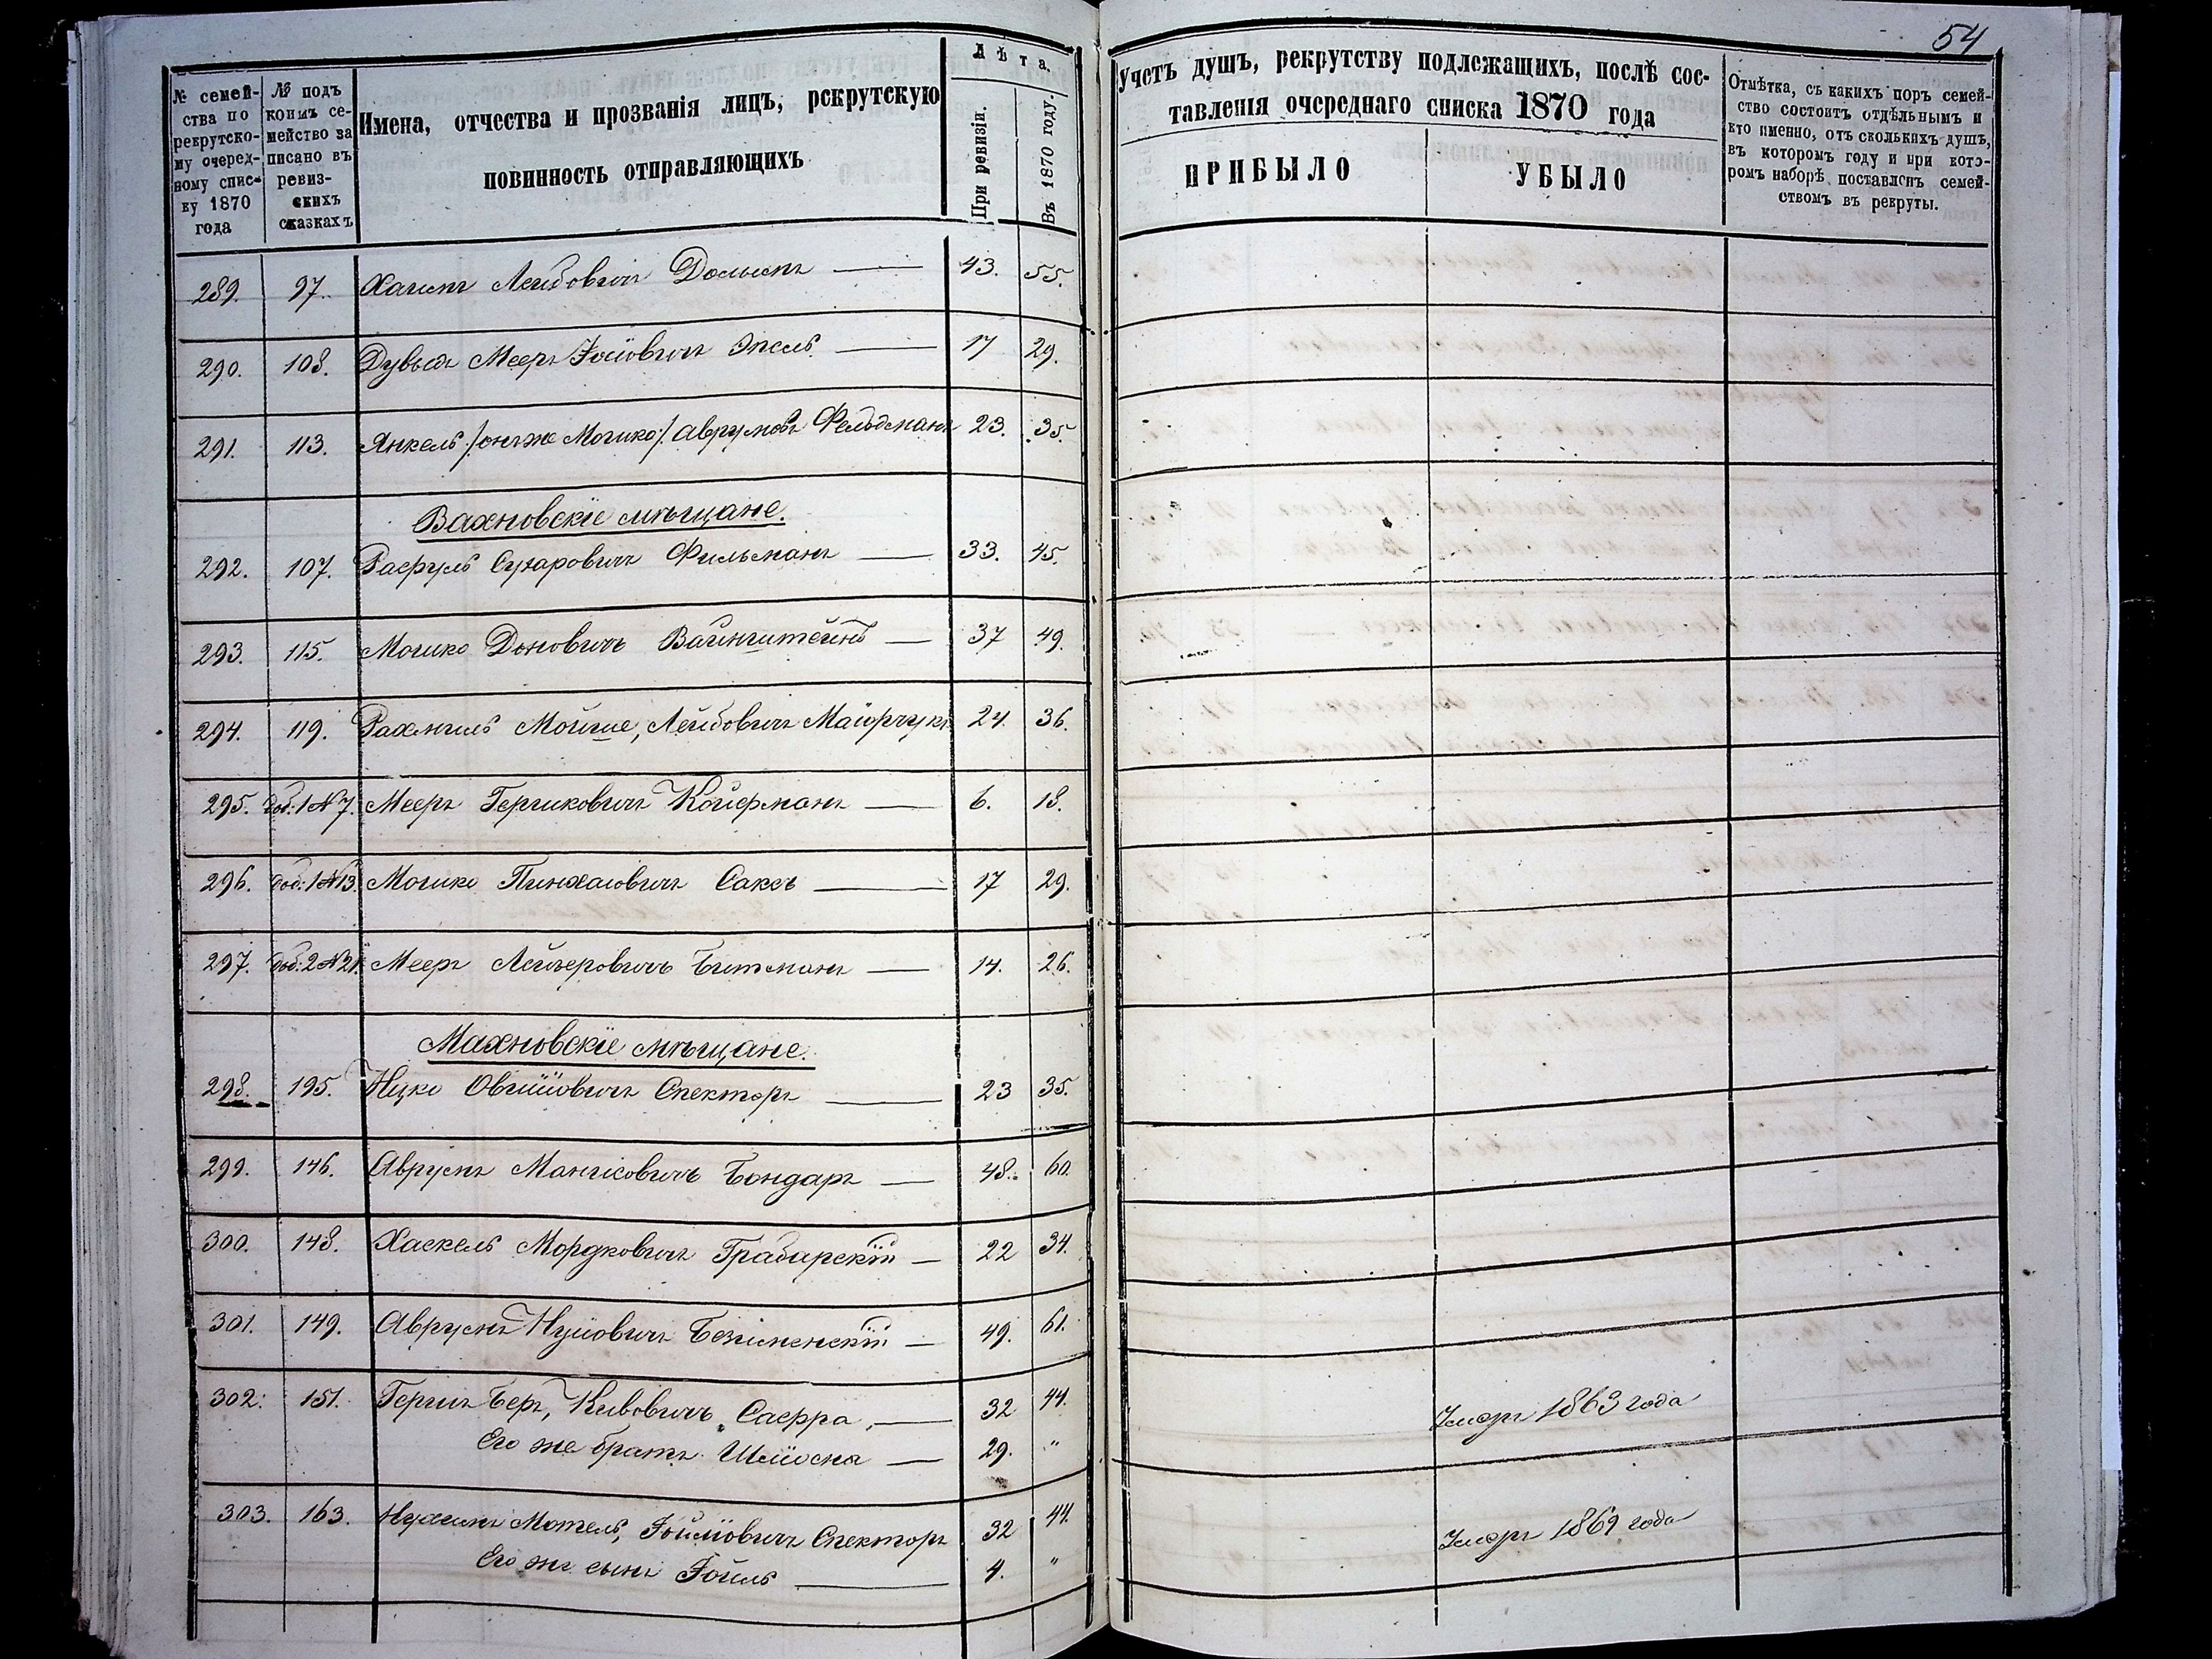 54
№ семей-
ства по
рекрутско-
му очеред-
ному спис-
ку 1870
года
№ подъ
коимъ се-
мейство за
писано въ
ревиз-
скихъ
сказкахъ
Имена, отчества и прозванія лицъ, рекрутскую
повинность отправляющихъ
Лѣта.
При ревизіи.
Въ 1870 году.
Учетъ душъ, рекрутству подлежащихъ, послѣ сос-
тавленія очереднаго списка 1870 года
ПРИБЫЛО
УБЫЛО
Отмѣтка, съ какихъ поръ семей-
ство состоитъ отдѣльнымъ и
кто именно, отъ сколькихъ душъ,
въ котороmъ году и при кото-
ромъ наборѣ поставленъ семей-
ствомъ въ рекруты.
289. 97. Хаимъ Лейбовичъ 43. 55.
290. 108. Дувидъ Мееръ Іойовичъ 17 29.
291. 113. Янкель /онъ же Мошко/ Аврумовъ Фельдманъ 23. 35.
Вахновскіе мѣщане.
292. 107. Рафуль Сухаровичъ Фильманъ 33. 45.
293. 115. Мошко Доновичъ Вайнштейнъ 37 49.
294. 119. Рахмиль Мойше, Лейбовичъ Маіорчукъ 24. 36.
295. Доб: 1 № 7. Мееръ Гершковичъ Койфманъ 6. 18.
296. Доб: 1 № 13. Мошко Пинхасовичъ Саксъ 17 29.
297. Доб: 2 № 21. Мееръ Лейзеровичъ Битманъ 14. 26.
Махновскіе мѣщане.
298. 195. Ицко Овшіовичъ Спекторъ 23 35.
299. 146. Аврумъ Манисовичъ Бондаръ 48. 60.
300. 148. Хаскель Мордковичъ Грабарскій 22 34.
301. 149. Аврумъ Нухимовичъ Безименскій 49. 61.
302. 151. Гершъ Беръ, Кивовичъ Сафра 32 44.
Его же братъ Шліома 29. " Умеръ 1863 года
303. 163. Нухимъ Мотель, Іойліовичъ Спекторъ 32 44.
Его же сынъ Іойль 4. " Умеръ 1869 года